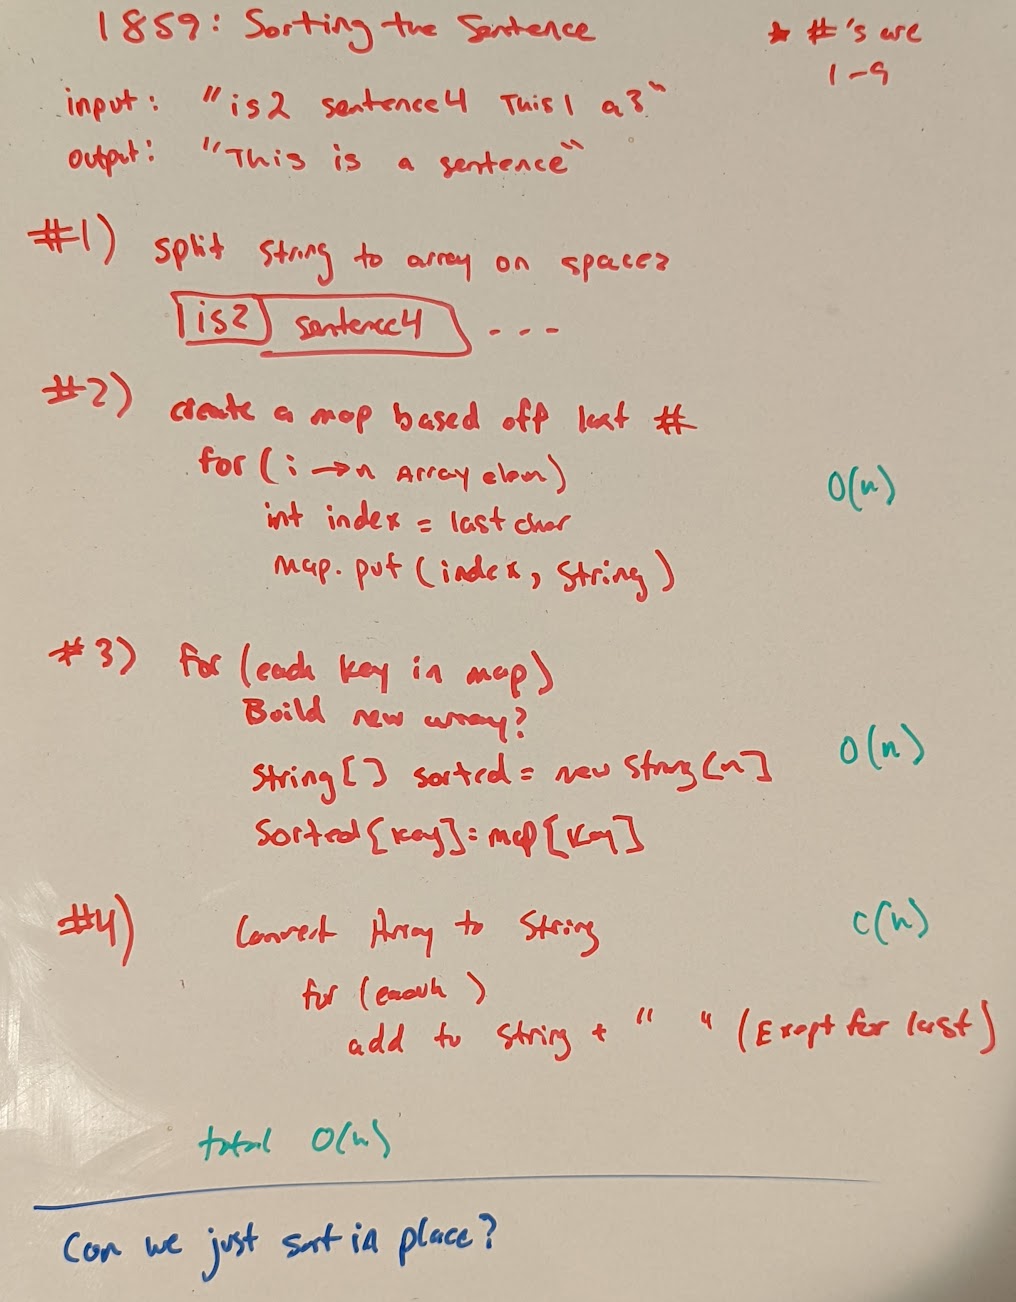 1859: Sorting the Sentence
* #'s are
1-9
input: "is2 sentence4 This1 a3"
output: "This is a sentence"
#1) split string to array on spaces
is2 sentence4 ---
#2) create a map based off last #
for (i → n Array elem)
O(n)
int index = last char
map.put (index, String)
#3) for (each key in map)
Build new array?
String[] sorted = new String[n]
O(n)
Sorted[key] = map[key]
#4) Convert Array to String
O(n)
for (each)
add to string + " " (Exept for last)
total O(n)
Can we just sort in place?